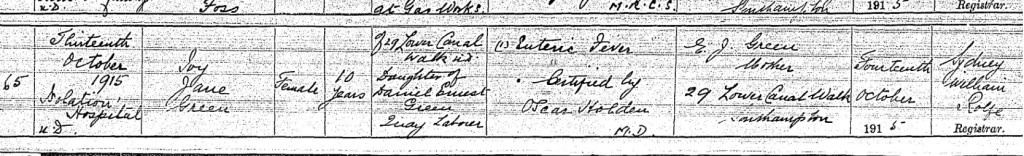 U.D.
Foss
at Gas Works.
M.R.C.S.
Southampton
1915
Registrar.
65
Thirteenth
October
1915
Isolation
Hospital
U.D.
Joy
Jane
Green
Female
10
years
of 29 Lower Canal
Walk U.D.
Daughter of
Daniel Ernest
Green
Quay Laborer
(1) Enteric Fever
Certified by
Oscar Holden
M.D.
E. J. Green
Mother
29 Lower Canal Walk
Southampton
Fourteenth
October
1915
Sydney
William
Rolfe
Registrar.